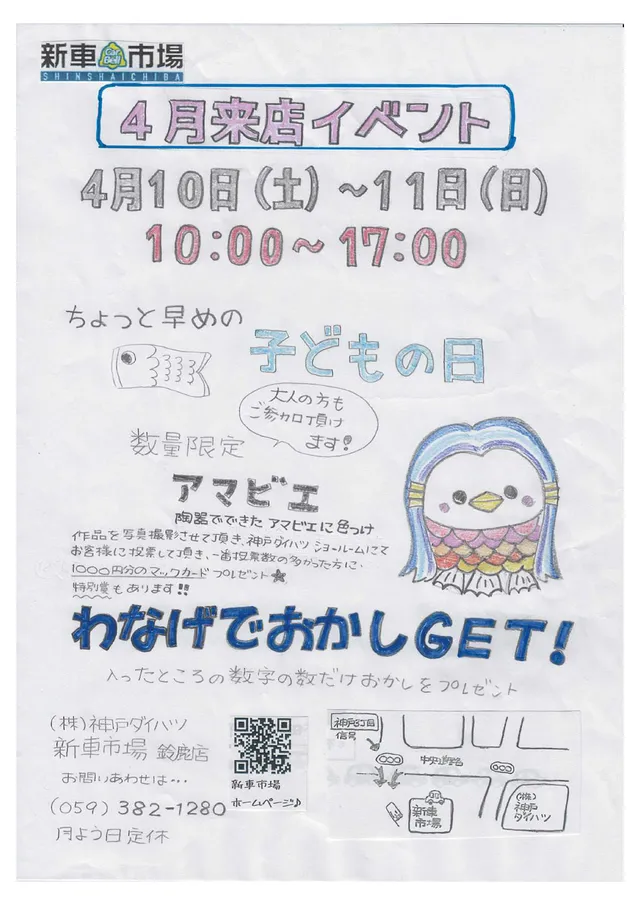 新車 Car Bell 市場
SHINSHAICHIBA
4月来店イベント
4月10日(土)~11日(日)
10:00~17:00
ちょっと早めの
子どもの日
大人の方も
ご参加頂け
ます!
数量限定
アマビエ
陶器でできた アマビエに色つけ
作品を写真撮影させて頂き、神戸ダイハツ ショールームにて
お客様に投票して頂き、一番投票数の多かった方に、
1000円分のマックカード プレゼント★
特別賞もあります!!
わなげでおかしGET!
入ったところの数字の数だけおかしをプレゼント
(株)神戸ダイハツ
新車市場 鈴鹿店
お問いあわせは…
(059) 382-1280
月よう日定休
新車市場
ホームページ♪
神戸3丁目
信号
新車
市場
(株)
神戸
ダイハツ